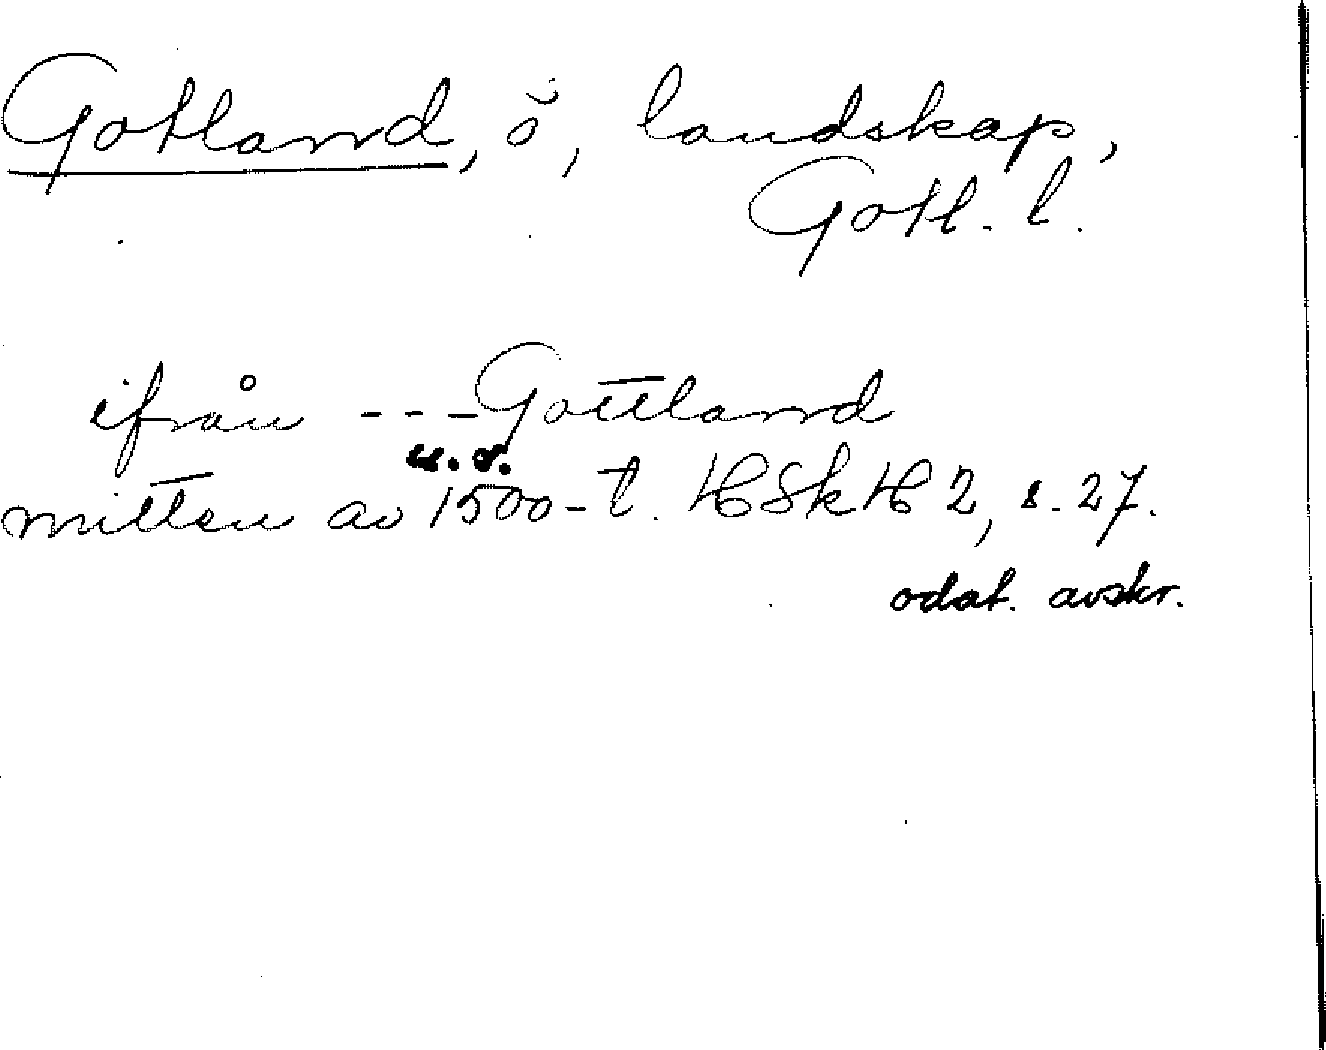 Gotland, ö, landskap,
Gotl. l.
ifrån --- Gottland
mitten av 1500-t. HSkH 2, s. 27.
odat. avskr.